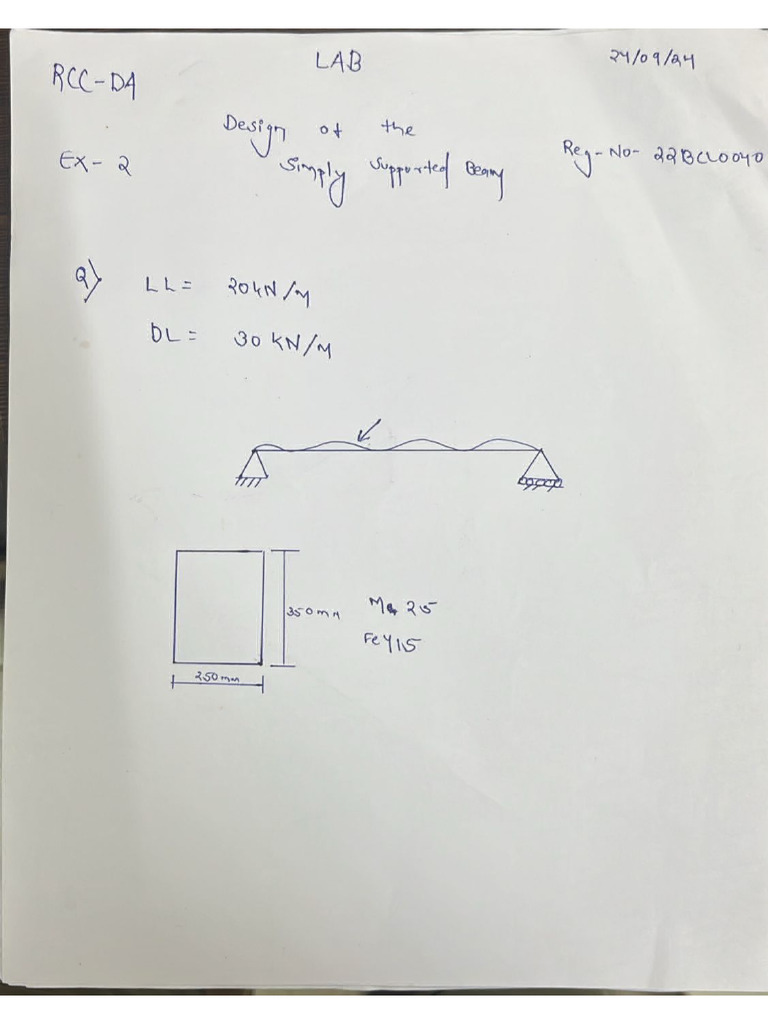 LAB
24/09/24
RCC-DA
Design of the
Simply Supported Beam
EX- 2
Reg-No- 22BCL0040
Q) LL= 20kN/M
DL= 30 KN/M
350mm
M 25
Fe415
250mm